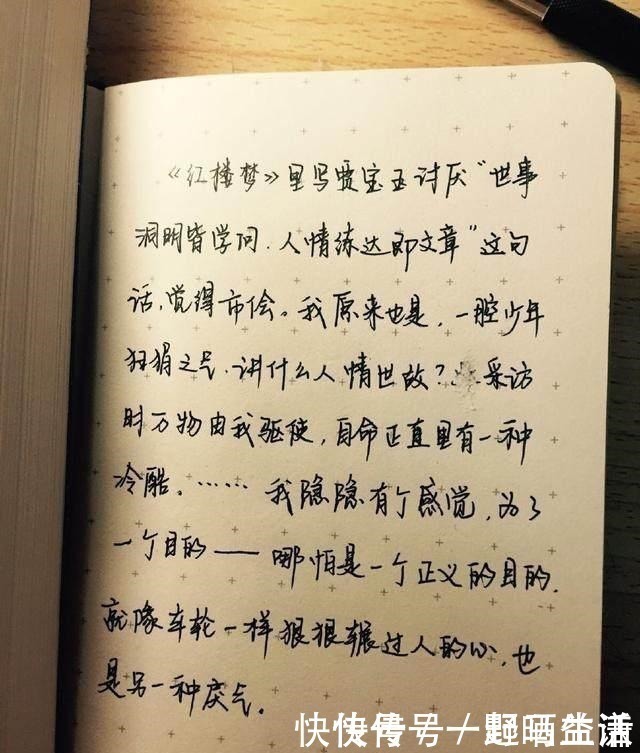 《红楼梦》里写贾宝玉讨厌“世事
洞明皆学问.人情练达即文章”这句
话,觉得市侩。我原来也是,一腔少年
狂狷之气,讲什么人情世故?采访
时万物由我驱使,自命正直里有一种
冷酷。……我隐隐有个感觉,为了
一个目的——哪怕是一个正义的目的,
就像车轮一样狠狠辗过人的心,也
是另一种戾气。
快传号/